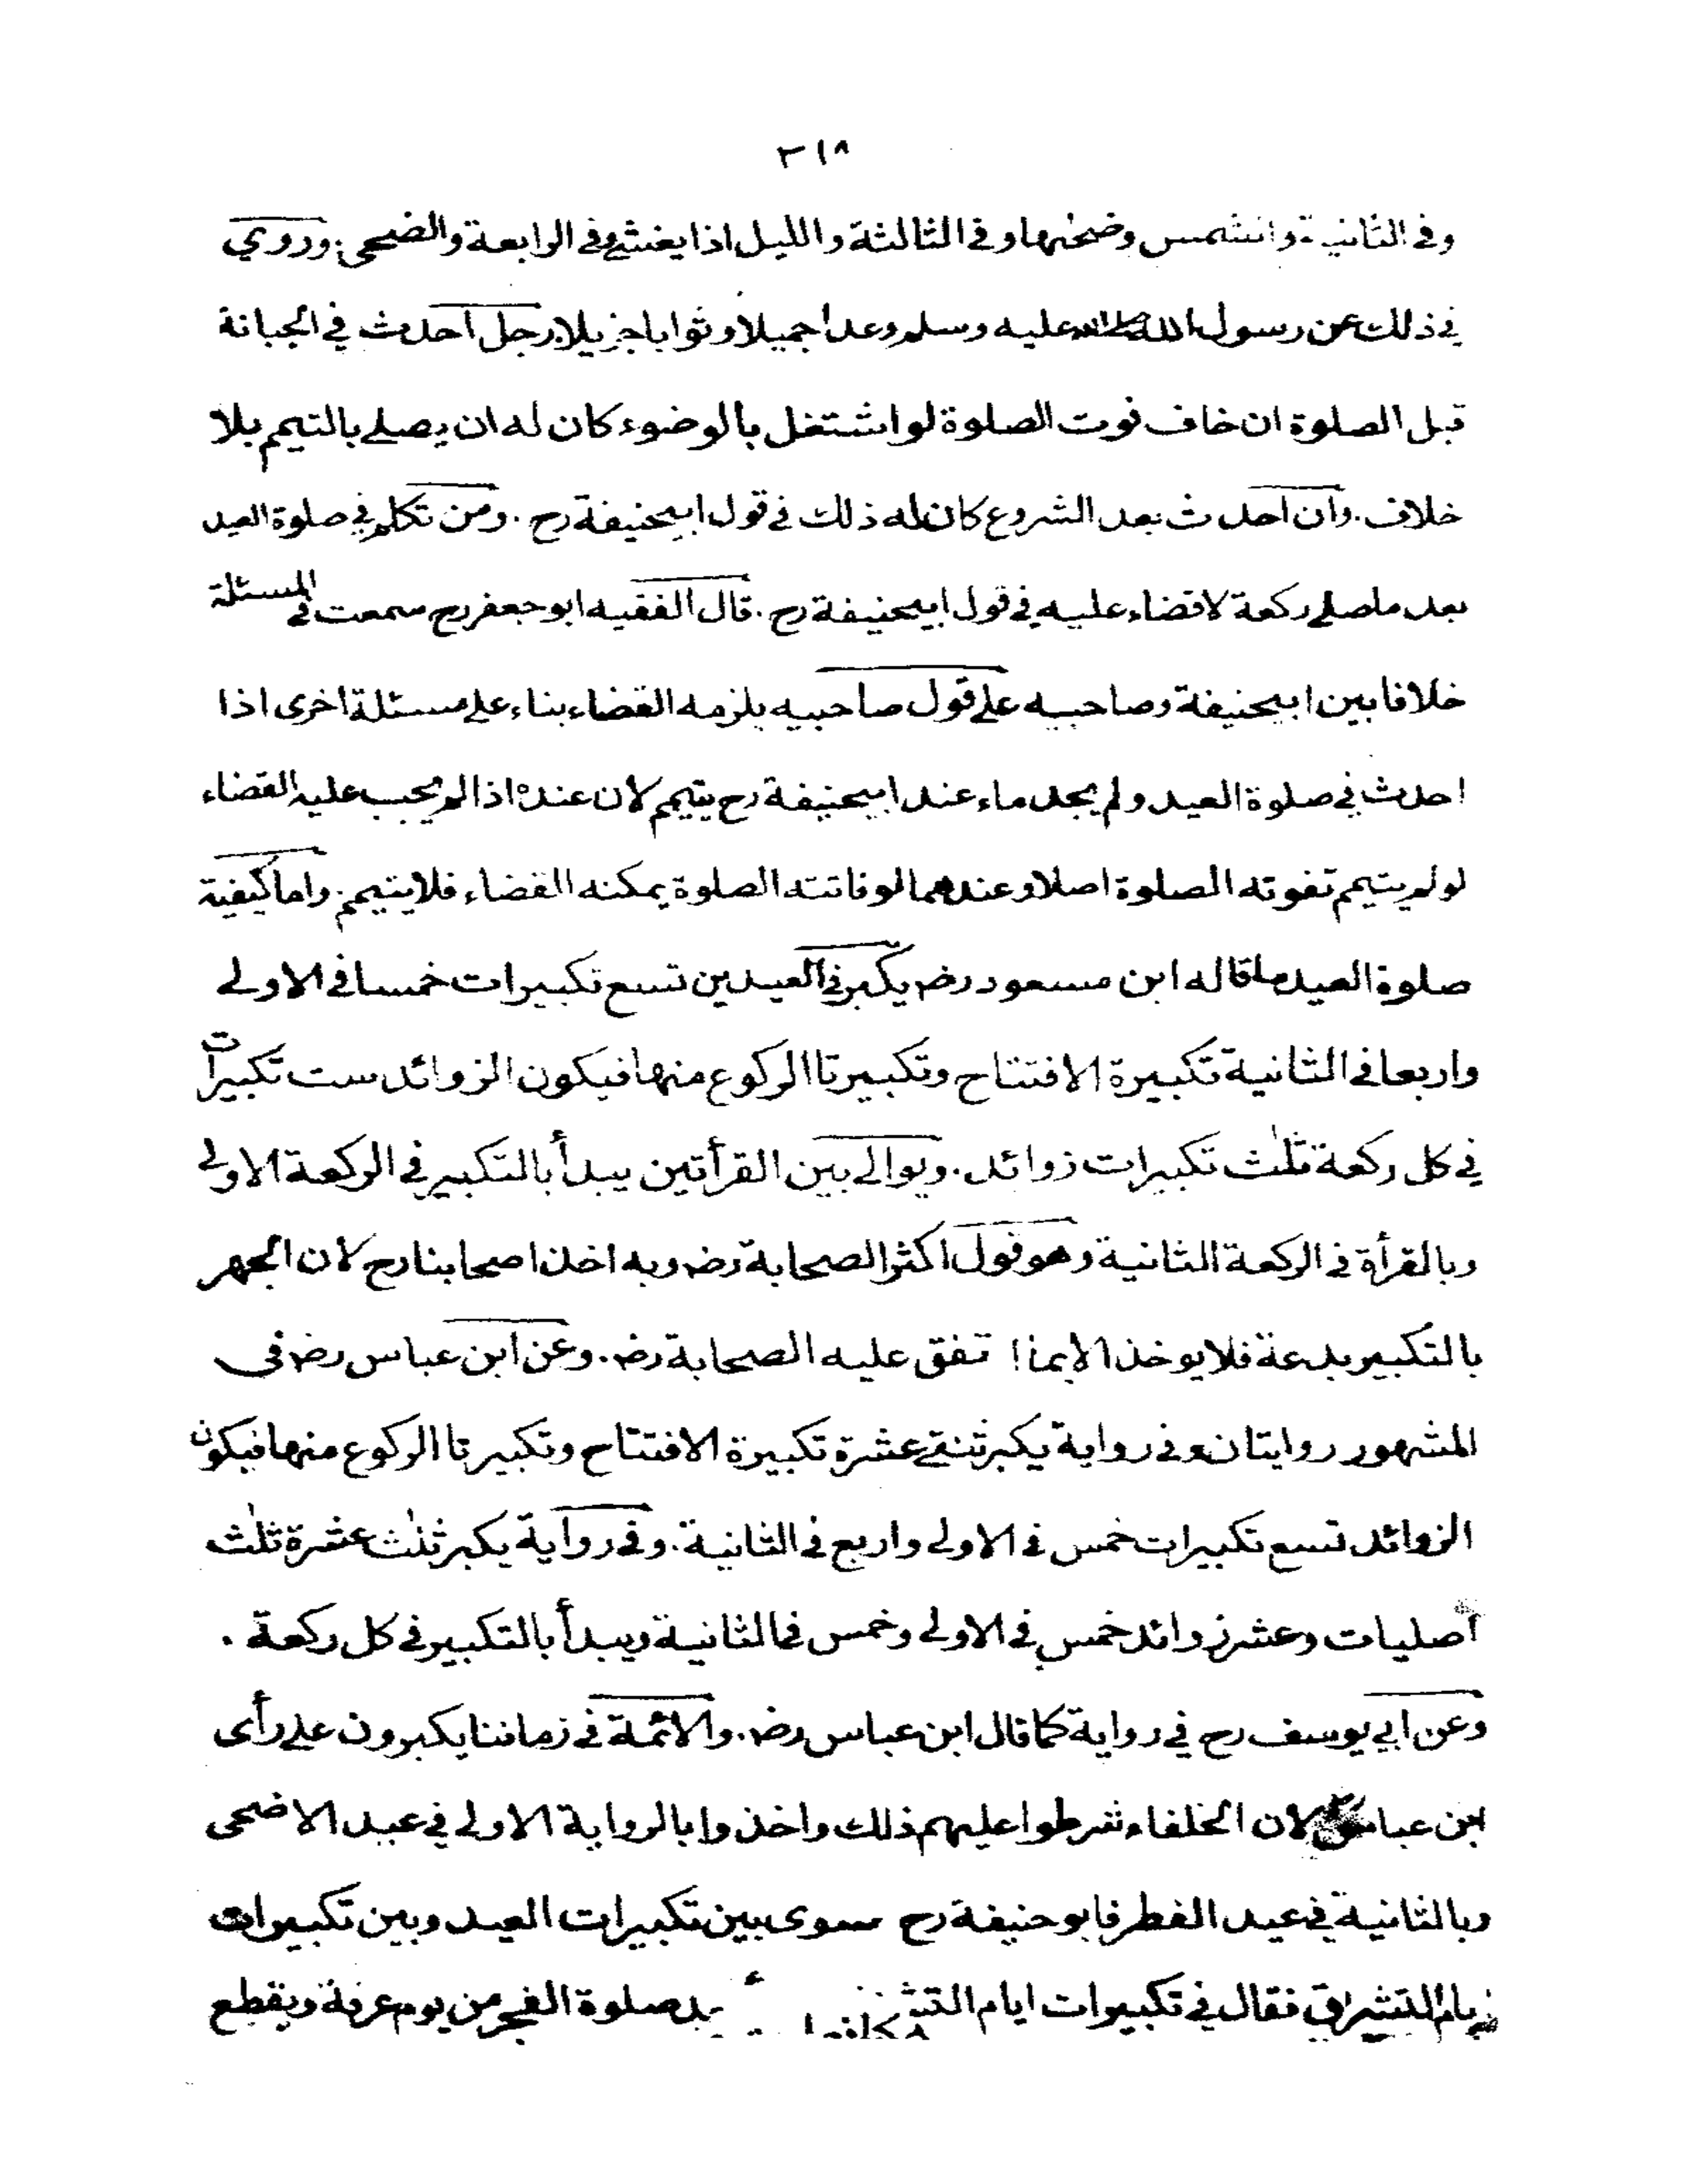 ٣١٨
وفى الثانية والشمس وضحٰها وفى الثالثة والليل اذا يغشى وفى الرابعة والضحى. وروي
فى ذلك عن رسول الله صلى الله عليه وسلم وعدا جميلا وثوابا جزيلا. رجل احدث في الجبانة
قبل الصلوة ان خاف فوت الصلوة لو اشتغل بالوضوء كان له ان يصلى بالتيمم بلا
خلاف. وان احدث بعد الشروع كان له ذلك فى قول ابيحنيفة رح. ومن تكلم فى صلوة العيد
بعد ما صلى ركعة لا قضاء عليه فى قول ابيحنيفة رح. قال الفقيه ابو جعفر رح سمعت فى المسئلة
خلافا بين ابيحنيفة وصاحبيه على قول صاحبيه يلزمه القضاء بناء على مسئلة اخرى اذا
احدث فى صلوة العيد ولم يجد ماء عند ابيحنيفة رح يتيمم لان عنده اذا لم يجب عليه القضاء
لو لم يتيمم تفوته الصلوة اصلا وعندهما لو فاتته الصلوة يمكنه القضاء فلا يتيمم. واما كيفية
صلوة العيد ما قاله ابن مسعود رضه يكبر فى العيدين تسع تكبيرات خمسا فى الاولى
واربعا فى الثانية تكبيرة الافتتاح وتكبيرتا الركوع منها فيكون الزوائد ست تكبيرات
فى كل ركعة ثلٰث تكبيرات زوائد. ويوالى بين القرأتين يبدأ بالتكبير فى الركعة الاولى
وبالقرأة فى الركعة الثانية وهو قول اكثر الصحابة رضه وبه اخذ اصحابنا رح لان الجهر
بالتكبير بدعة فلا يوخذ الا بما اتفق عليه الصحابة رضه. وعن ابن عباس رضه فى
المشهور روايتان وفى رواية يكبر ثنتى عشرة تكبيرة الافتتاح وتكبيرتا الركوع منها فيكون
الزوائد تسع تكبيرات خمس فى الاولى واربع فى الثانية. وفى رواية يكبر ثلٰث عشرة ثلٰث
اصليات وعشر زوائد خمس فى الاولى وخمس فى الثانية ويبدأ بالتكبير فى كل ركعة.
وعن ابي يوسف رح في رواية كما قال ابن عباس رضه. والائمة فى زماننا يكبرون على رأى
ابن عباس لان الخلفاء شرطوا عليهم ذلك واخذوا بالرواية الاولى فى عيد الاضحى
وبالثانية فى عيد الفطر فابو حنيفة رح سوى بين تكبيرات العيد وبين تكبيرات
ايام التشريق فقال فى تكبيرات ايام صلوة الفجر من يوم عرفة ويقطع